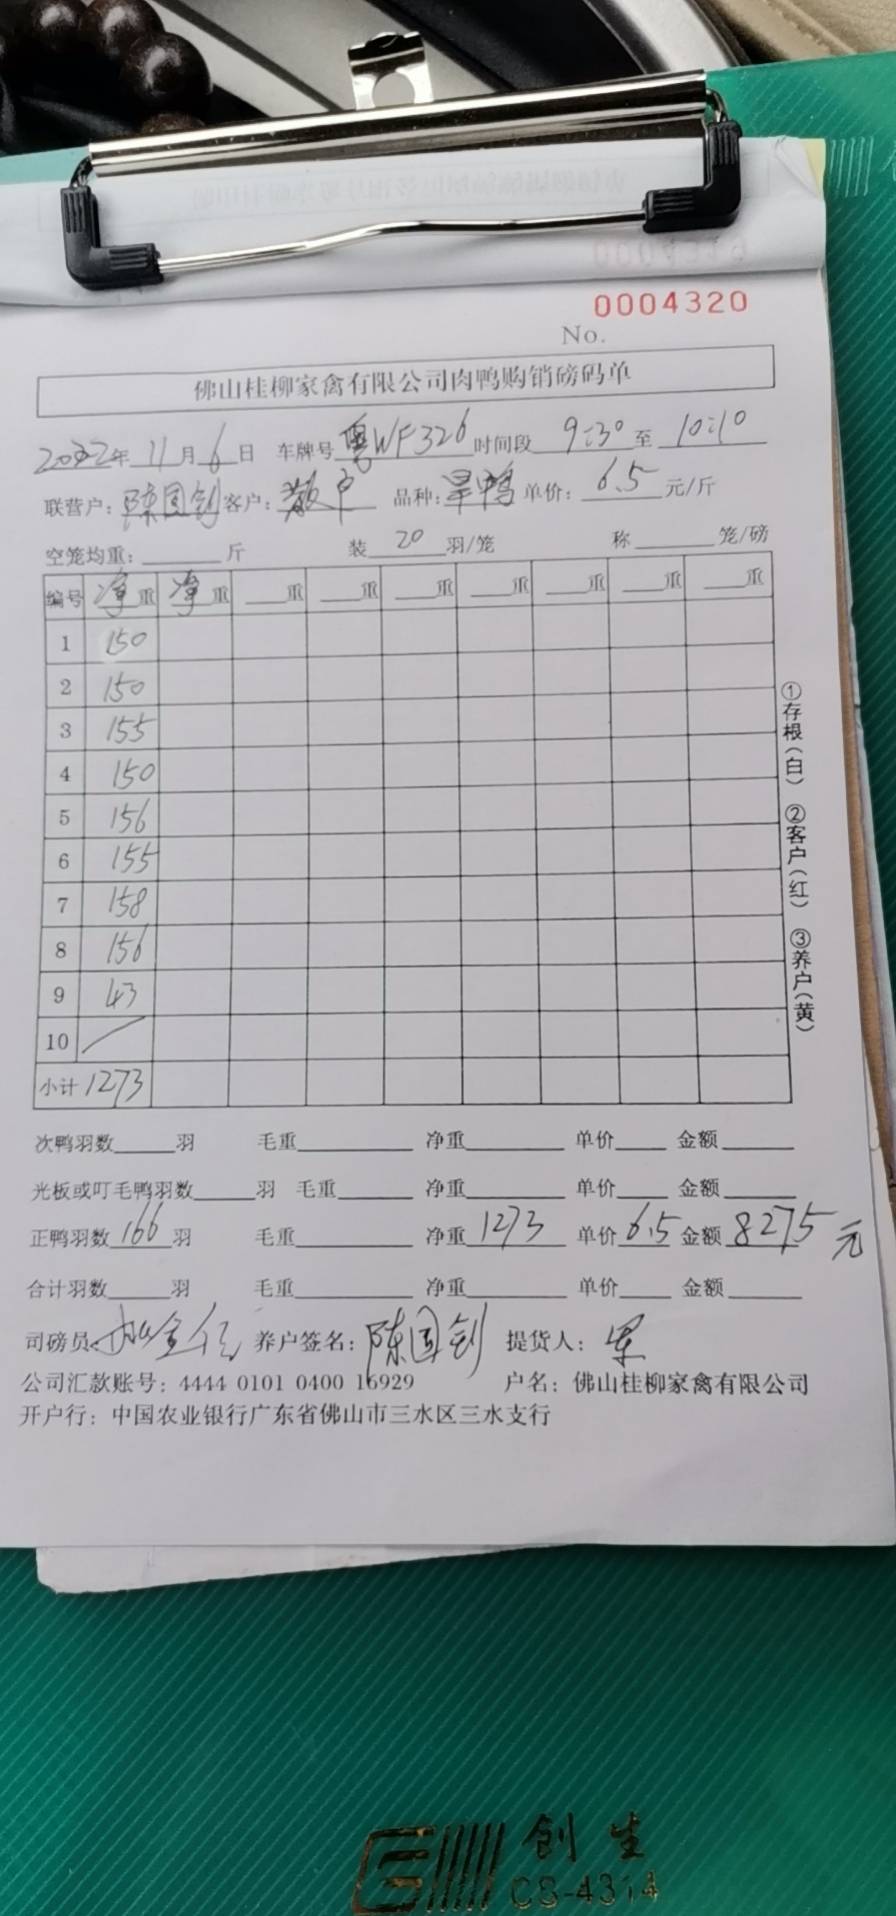 0004320
No.
佛山桂柳家禽有限公司肉鸭购销磅码单
2022年 11月6日 车牌号 粤WF326 时间段 9:30 至 10:10
联营户：陈国钊 客户：散户 品种：旱鸭 单价：6.5 元/斤
空笼均重：______斤 装 20 羽/笼 称______笼/磅
编号 净重 净重 ___重 ___重 ___重 ___重 ___重 ___重 ___重
1 150
2 150
3 155
4 150
5 156
6 155
7 158
8 156
9 43
10
小计 1273
①存根（白） ②客户（红） ③养户（黄）
次鸭羽数_____羽 毛重_____ 净重_____ 单价_____ 金额_____
光板或叮毛鸭羽数_____羽 毛重_____ 净重_____ 单价_____ 金额_____
正鸭羽数 166 羽 毛重_____ 净重 1273 单价 6.5 金额 8275元
合计羽数_____羽 毛重_____ 净重_____ 单价_____ 金额_____
司磅员： 养户签名：陈国钊 提货人：
公司汇款账号：4444 0101 0400 16929 户名：佛山桂柳家禽有限公司
开户行：中国农业银行广东省佛山市三水区三水支行
创生
CS-4314